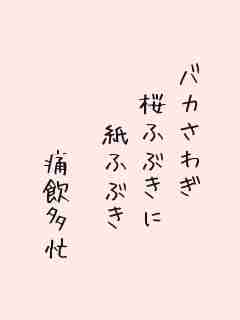 バカさわぎ
桜ふぶきに
紙ふぶき
痛飲多忙